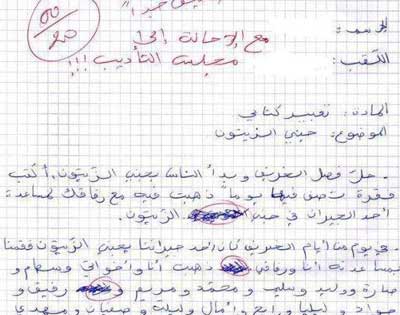 00
20
مع الإحالة إلى
الاسم:
مجلس التأديب!!!
اللقب:
المادة: تعبير كتابي
الموضوع: جني الزيتون
- حل فصل الخريف وبدأ الناس بجني الزيتون. أكتب
فقرة تصف فيها يوما ذهبت فيه مع رفاقك لمساعدة
أحد الجيران في جني الزيتون.
- في يوم من أيام الخريف كان أحد جيراننا يجني الزيتون فقمنا
بمساعدته أنا ورفاقي ذهبت أنا وأخواتي وسهام و
صارة ووليد و محمد و مريم و رفيق و
جواد و ليليا ورابح وأمال و ليلية و صفيان و مهدي